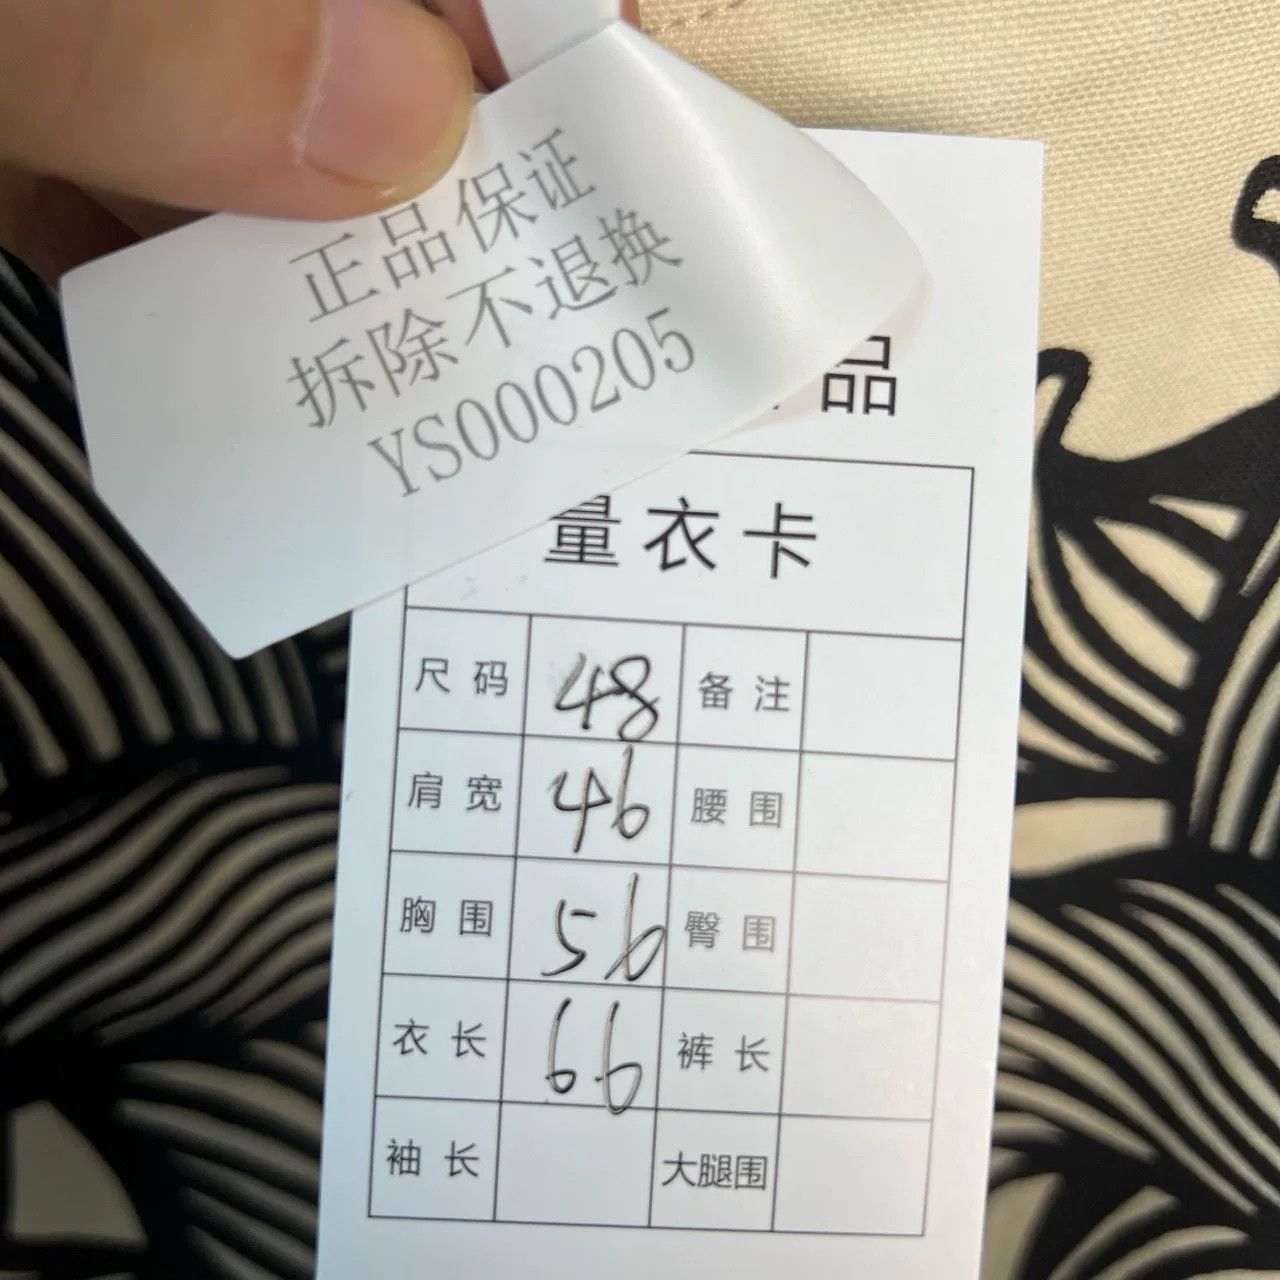 正品保证
拆除不退换
YS000205
品
量衣卡
尺码 48 备注
肩宽 46 腰围
胸围 56 臀围
衣长 66 裤长
袖长 大腿围